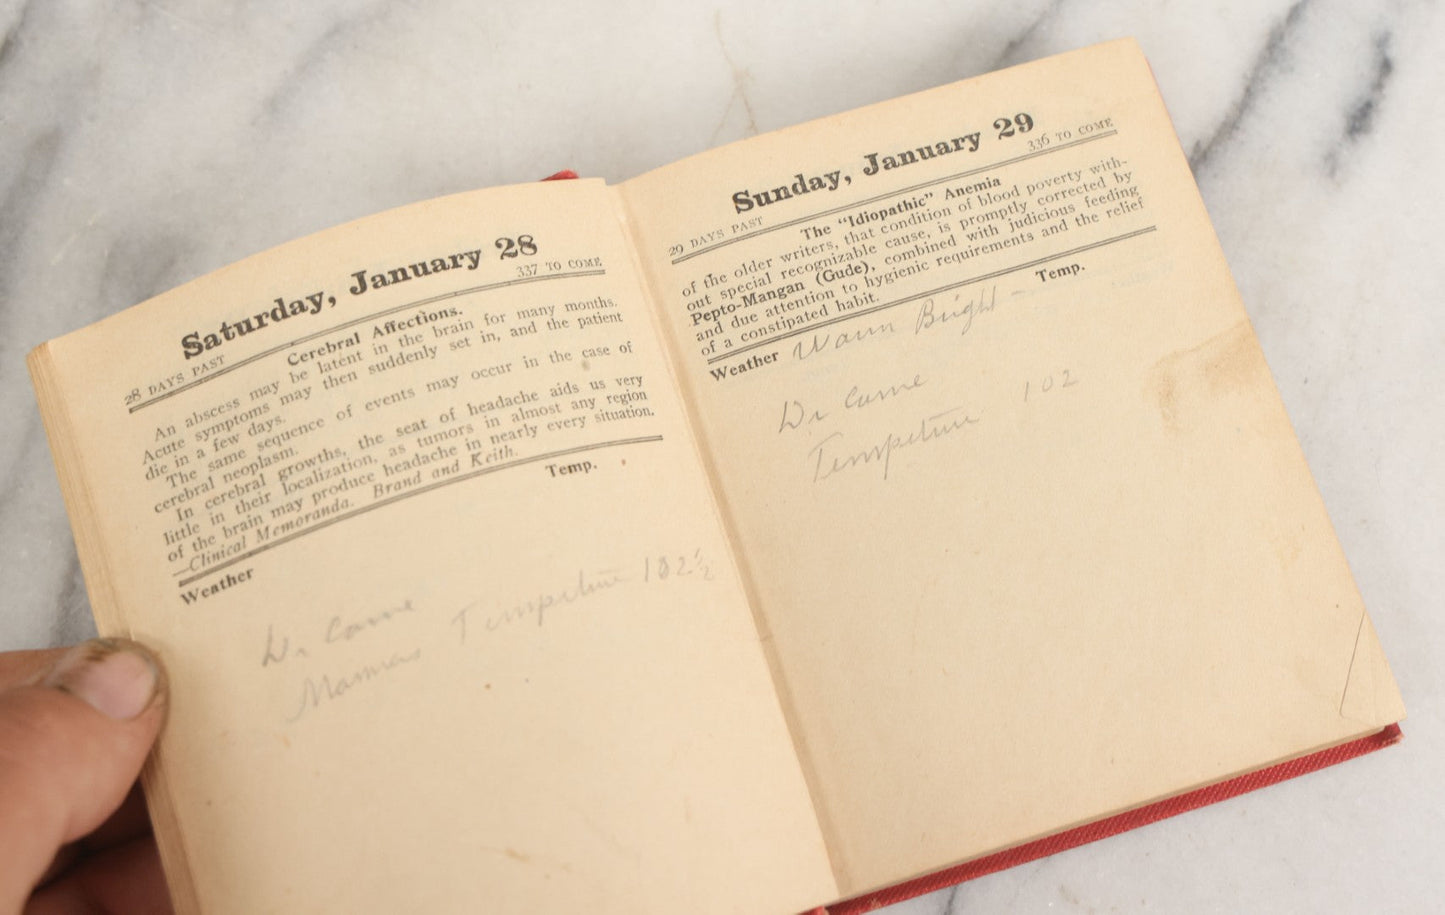 Saturday, January 28
28 DAYS PAST 337 TO COME
Cerebral Affections.
An abscess may be latent in the brain for many months.
Acute symptoms may then suddenly set in, and the patient
die in a few days.
The same sequence of events may occur in the case of
cerebral neoplasm.
In cerebral growths, the seat of headache aids us very
little in their localization, as tumors in almost any region
of the brain may produce headache in nearly every situation.
—Clinical Memoranda. Brand and Keith.
Weather Temp.
Dr Came
Mammas Tempeture 102½
Sunday, January 29
29 DAYS PAST 336 TO COME
The "Idiopathic" Anemia
of the older writers, that condition of blood poverty with-
out special recognizable cause, is promptly corrected by
Pepto-Mangan (Gude), combined with judicious feeding
and due attention to hygienic requirements and the relief
of a constipated habit.
Weather Warm Bright – Temp.
Dr Came
Tempeture 102